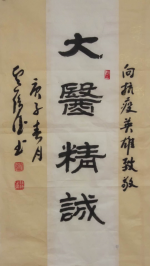 向抗疫英雄致敬
大醫精誠
庚子春月